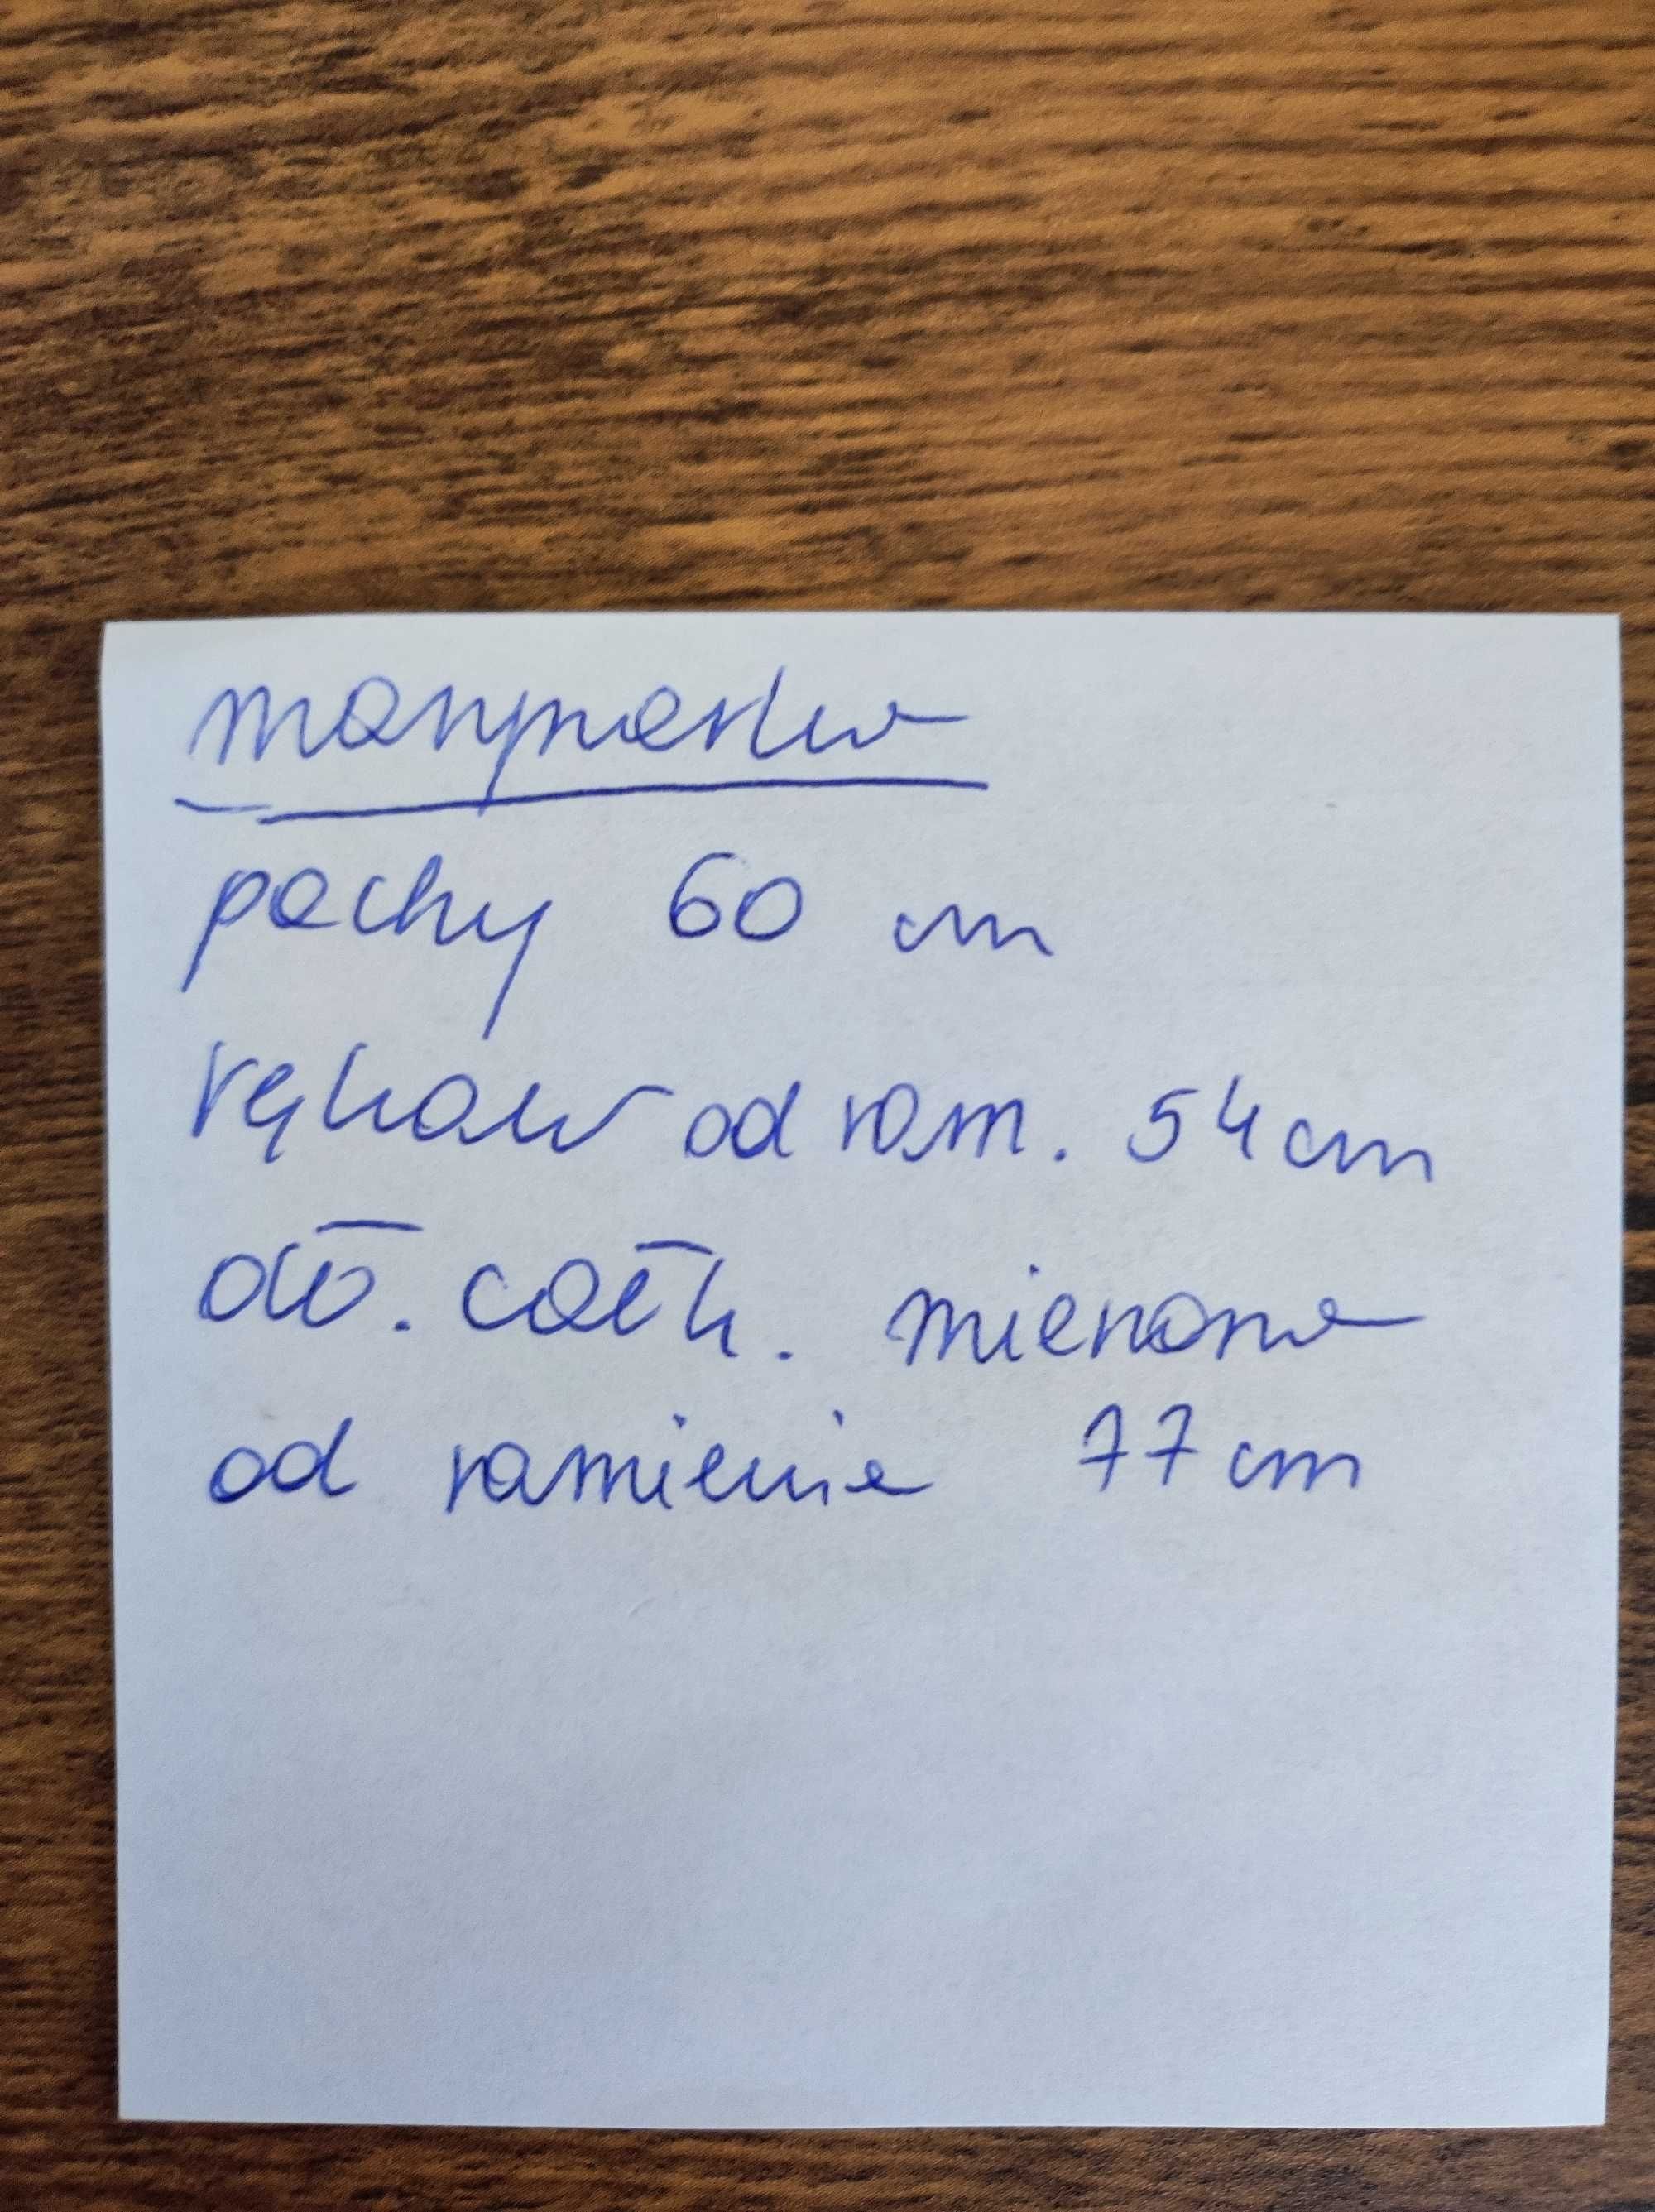 marynarka
pachy 60 cm
rękaw od ram. 54 cm
dł. całk. mierzona
od ramienia 77 cm